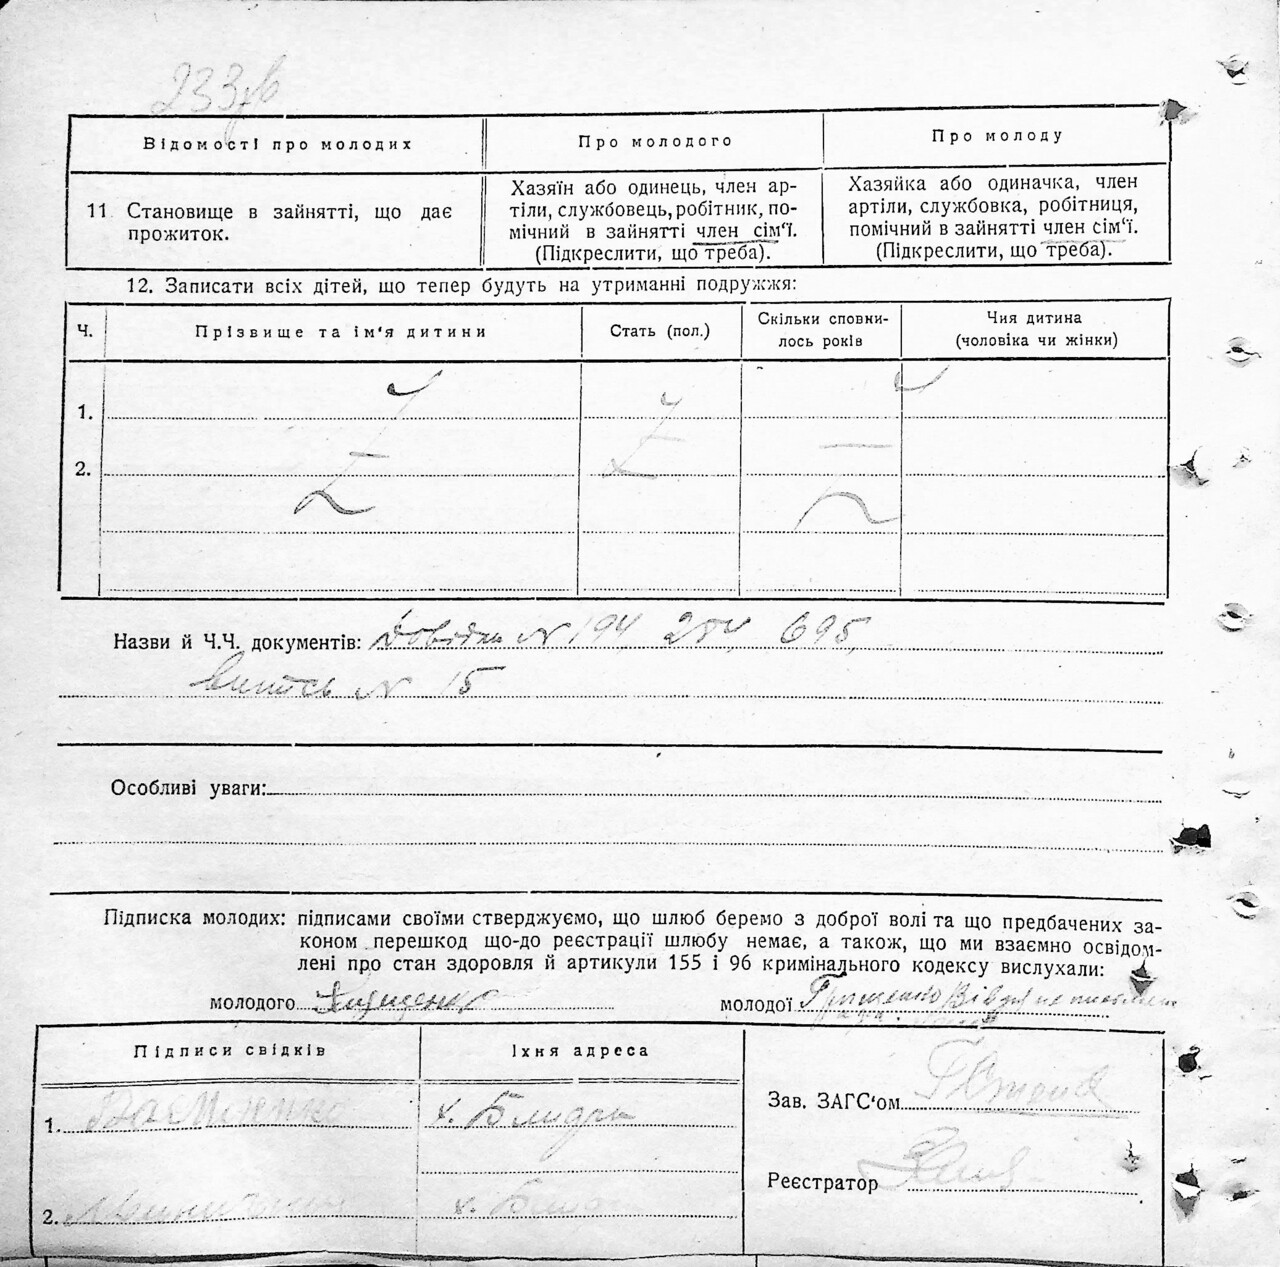 233
Відомості про молодих
Про молодого
Про молоду
11 Становище в зайнятті, що дає
прожиток.
Хазяїн або одинець, член ар-
тіли, службовець, робітник, по-
мічний в зайнятті член сім'ї.
(Підкреслити, що треба).
Хазяйка або одиначка, член
артіли, службовка, робітниця,
помічний в зайнятті член сім'ї.
(Підкреслити, що треба).
12. Записати всіх дітей, що тепер будуть на утриманні подружжя:
Ч.
Прізвище та ім'я дитини
Стать (пол.)
Скільки сповни-
лось років
Чия дитина
(чоловіка чи жінки)
1.
2.
Назви й Ч.Ч. документів: Довідки N 194, 254, 695,
витсь N 15
Особливі уваги:
Підписка молодих: підписами своїми стверджуємо, що шлюб беремо з доброї волі та що предбачених за-
коном перешкод що-до реєстрації шлюбу немає, а також, що ми взаємно освідом-
лені про стан здоровля й артикули 155 і 96 кримінального кодексу вислухали:
молодого
молодої
Підписи свідків
Їхня адреса
1.
х.
2.
х.
Зав. ЗАГС'ом
Реєстратор